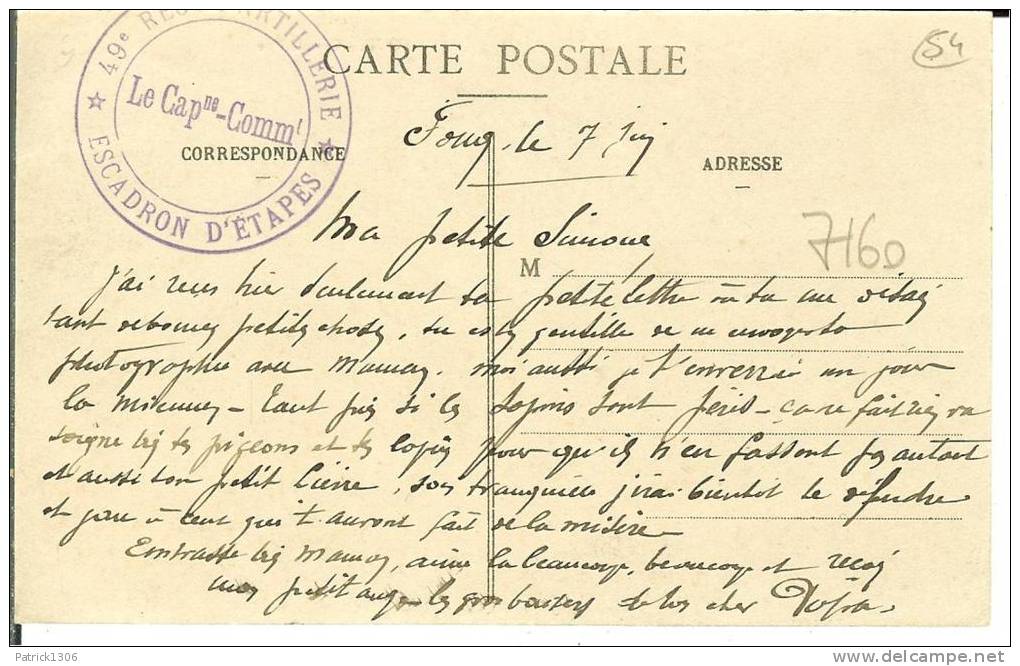 49e REGt D'ARTILLERIE
ESCADRON D'ÉTAPES
Le Capne-Commt
CARTE POSTALE
54
Foug, le 7 Juin
CORRESPONDANCE
ADRESSE
7160
Ma petite Simone
M
J'ai reçu hier seulement ta petite lettre où tu me disais
tant de bonnes petites choses, tu es très gentille de m'envoyer ta
photographie avec Maman. moi aussi je t'enverrai un jour
la mienne - Tant pis si les sapins sont péris - ça ne fait rien va
soigne bien tes pigeons et tes lapins pour qu'ils n'en fassent pas autant
et aussi ton petit lierre, sois tranquille j'irai bientôt te défendre
et gare à ceux qui t'auront fait de la misère
Embrasse bien Maman, aime la beaucoup, beaucoup et reçois
mon petit ange les gros baisers de ton cher Papa.
Patrick1306
www.delcampe.net